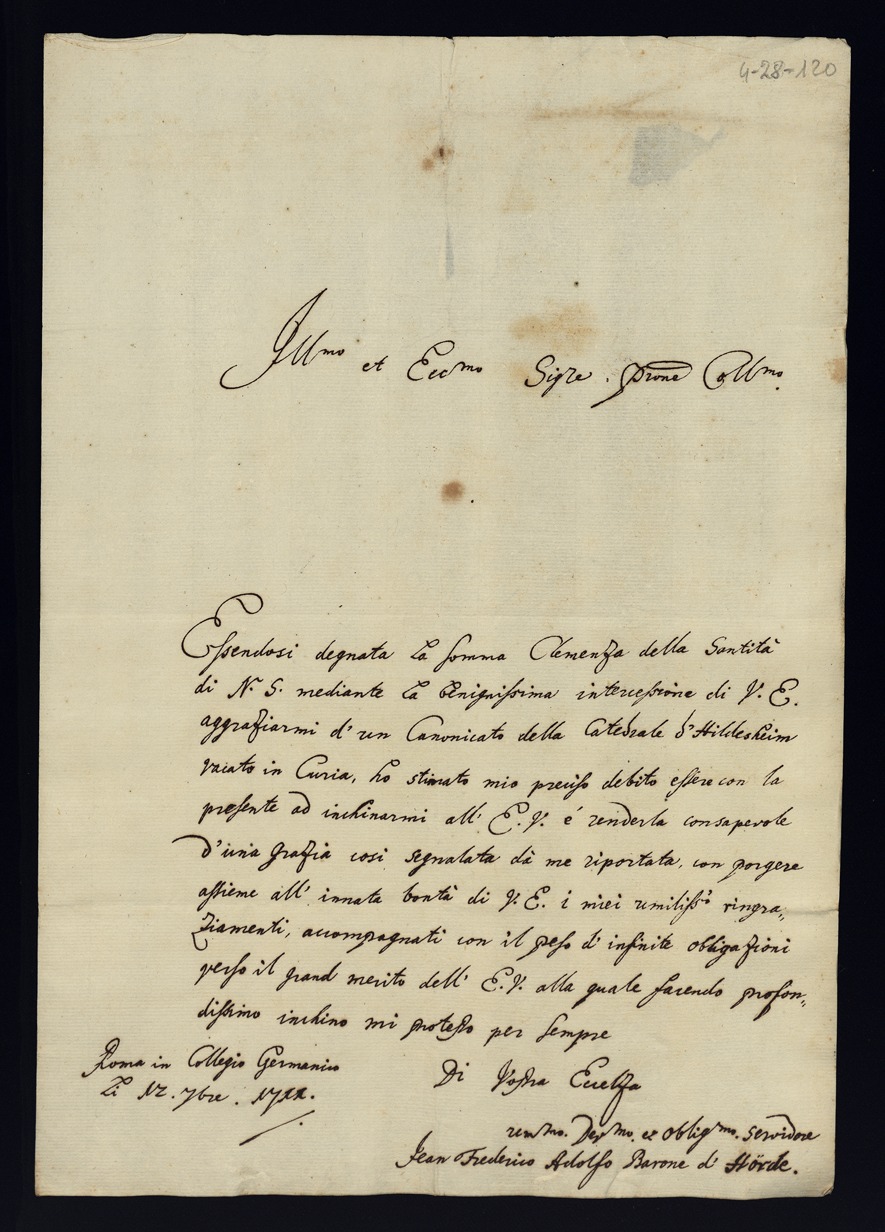 4-28-120
Ill.mo et Ecc.mo Sig.re . Prone Coll.mo.
Essendosi degnata la somma Clemenza della Santità
di N. S. mediante la benignissima intercessione di V. E.
aggraziarmi d' un Canonicato della Catedrale d' Hildesheim
vacato in Curia, ho stimato mio preciso debito essere con la
presente ad inchinarmi all' E. V. é renderla consapevole
d'una grazia cosi segnalata dà me riportata, con porgere
assieme all' innata bontà di V. E. i miei umiliss.i ringra„
ziamenti, accompagnati con il peso d' infinite obligazioni
verso il grand merito dell' E. V. alla quale facendo profon„
dissimo inchino mi protesto per sempre
Roma in Collegio Germanico
Li 12 . 7bre . 1711.
Di Vostra Eccelza
um.mo. Dev.mo. et Oblig.mo. Servidore
Jean Frederico Adolfo Barone d' Hörde.